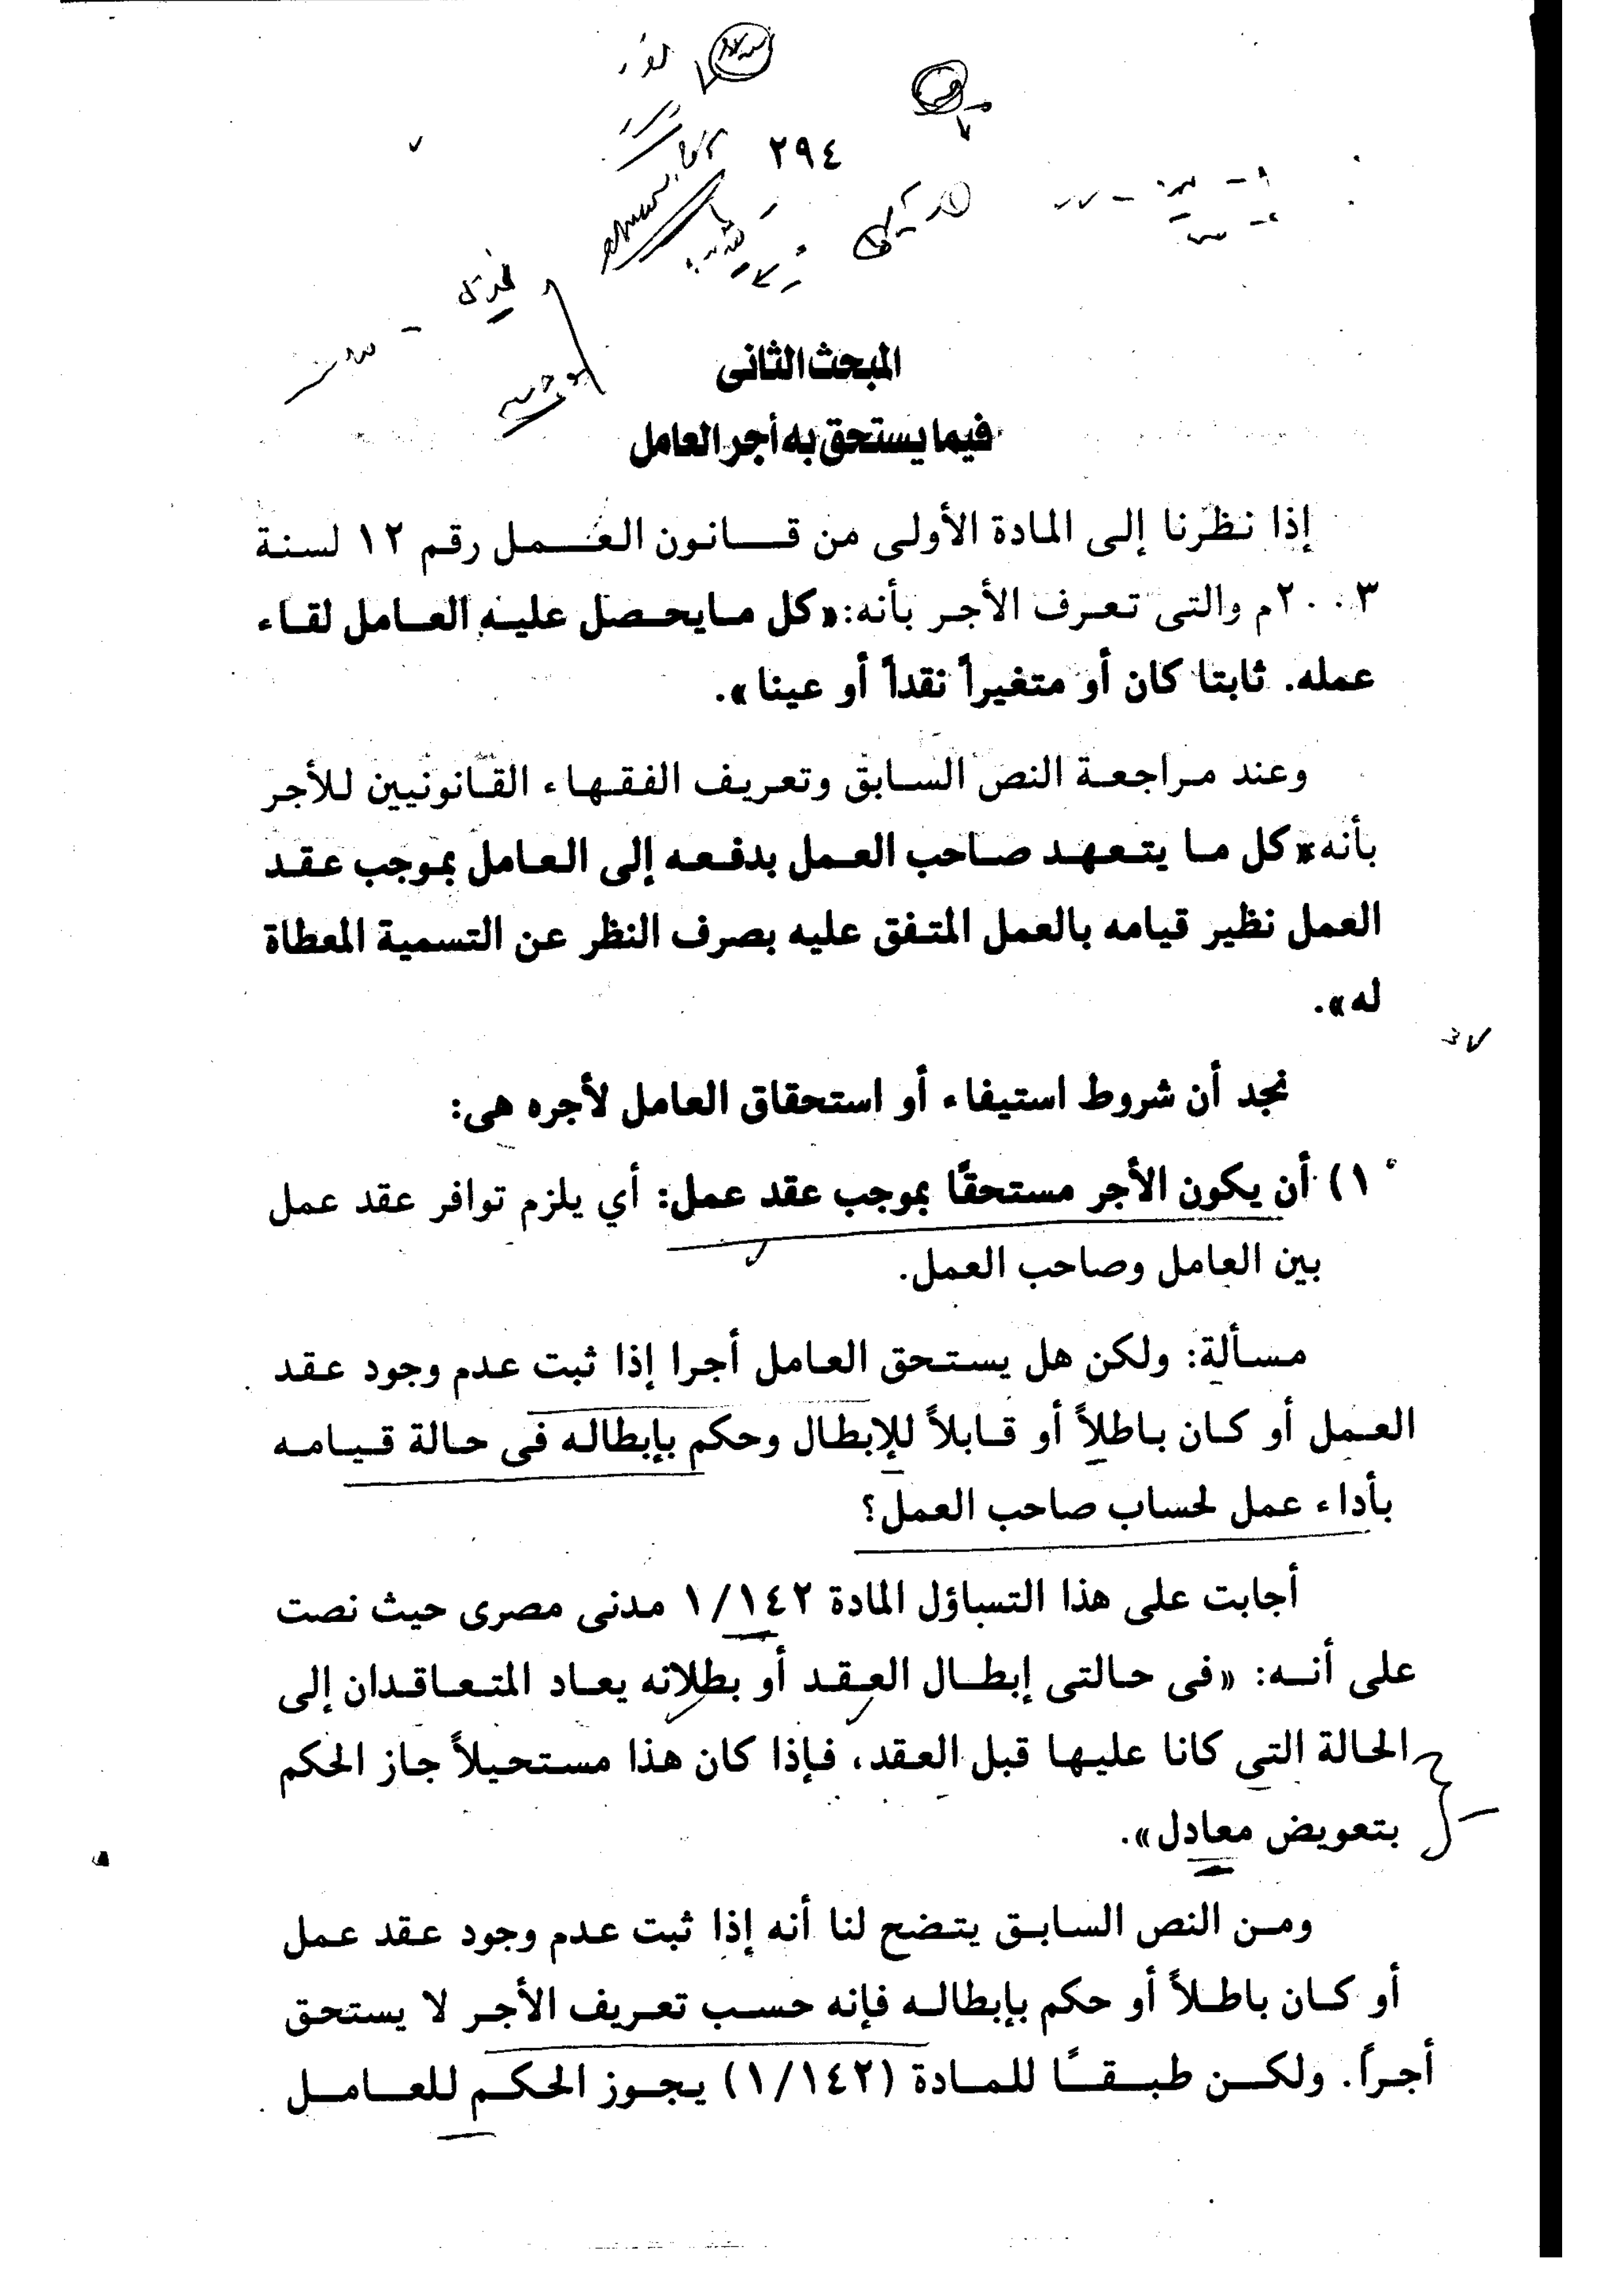 ٢٩٤
المبحث الثانى
فيما يستحق به أجر العامل
إذا نظرنا إلى المادة الأولى من قانون العمل رقم ١٢ لسنة
٢٠٠٣م والتى تعرف الأجر بأنه: «كل مايحصل عليه العامل لقاء
عمله. ثابتا كان أو متغيراً نقداً أو عينا».
وعند مراجعة النص السابق وتعريف الفقهاء القانونيين للأجر
بأنه «كل ما يتعهد صاحب العمل بدفعه إلى العامل بموجب عقد
العمل نظير قيامه بالعمل المتفق عليه بصرف النظر عن التسمية المعطاة
له».
نجد أن شروط استيفاء أو استحقاق العامل لأجره هى:
١) أن يكون الأجر مستحقًا بموجب عقد عمل: أي يلزم توافر عقد عمل
بين العامل وصاحب العمل.
مسألة: ولكن هل يستحق العامل أجرا إذا ثبت عدم وجود عقد
العمل أو كان باطلاً أو قابلاً للإبطال وحكم بإبطاله فى حالة قيامه
بأداء عمل لحساب صاحب العمل؟
أجابت على هذا التساؤل المادة ١/١٤٢ مدنى مصرى حيث نصت
على أنه: «فى حالتى إبطال العقد أو بطلانه يعاد المتعاقدان إلى
الحالة التى كانا عليها قبل العقد، فإذا كان هذا مستحيلاً جاز الحكم
بتعويض معادل».
ومن النص السابق يتضح لنا أنه إذا ثبت عدم وجود عقد عمل
أو كان باطلاً أو حكم بإبطاله فإنه حسب تعريف الأجر لا يستحق
أجراً. ولكن طبقًا للمادة (١/١٤٢) يجوز الحكم للعامل